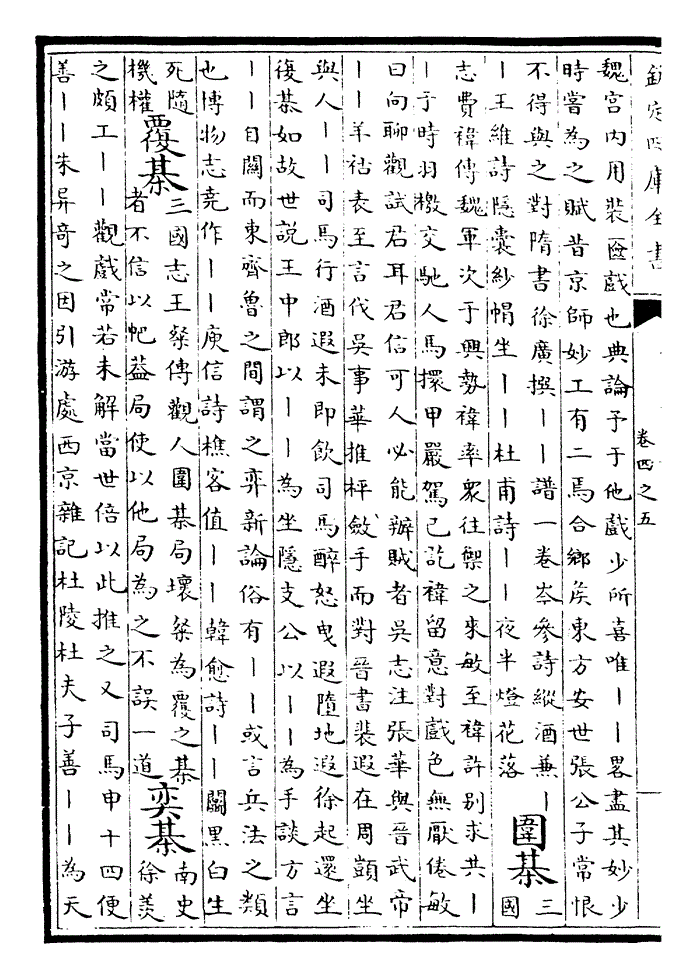 欽定四庫全書
卷四之五
魏宫内用裝匳戲也典論予于他戲少所喜唯丨丨畧盡其妙少
時嘗為之賦昔京師妙工有二馬合鄉侯東方安世張公子常恨
不得與之對隋書徐廣撰丨丨譜一卷岑參詩縱酒兼丨
丨王維詩隱囊紗帽坐丨丨杜甫詩丨丨夜半燈花落
圍棊
三
國
志費禕傳魏軍次于興勢禕率衆往禦之來敏至禕許别求共丨
丨于時羽檄交馳人馬擐甲嚴駕已訖禕留意對戲色無厭倦敏
曰向聊觀試君耳君信可人必能辦賊者吳志注張華與晉武帝
丨丨羊祜表至言伐吳事華推枰斂手而對晉書裴遐在周顗坐
與人丨丨司馬行酒遐未即飲司馬醉怒曳遐墮地遐徐起還坐
復棊如故世說王中郎以丨丨為坐隱支公以丨丨為手談方言
丨丨自關而東齊魯之間謂之弈新論俗有丨丨或言兵法之類
也博物志堯作丨丨庾信詩樵客值丨丨韓愈詩丨丨鬬黑白生
死隨
機權
覆棊
三國志王粲傳觀人圍棊局壞粲為覆之棊
者不信以帊蓋局使以他局為之不誤一道
奕棊
南史
徐羡
之頗工丨丨觀戲常若未解當世倍以此推之又司馬申十四便
善丨丨朱异奇之因引游處西京雜記杜陵杜夫子善丨丨為天